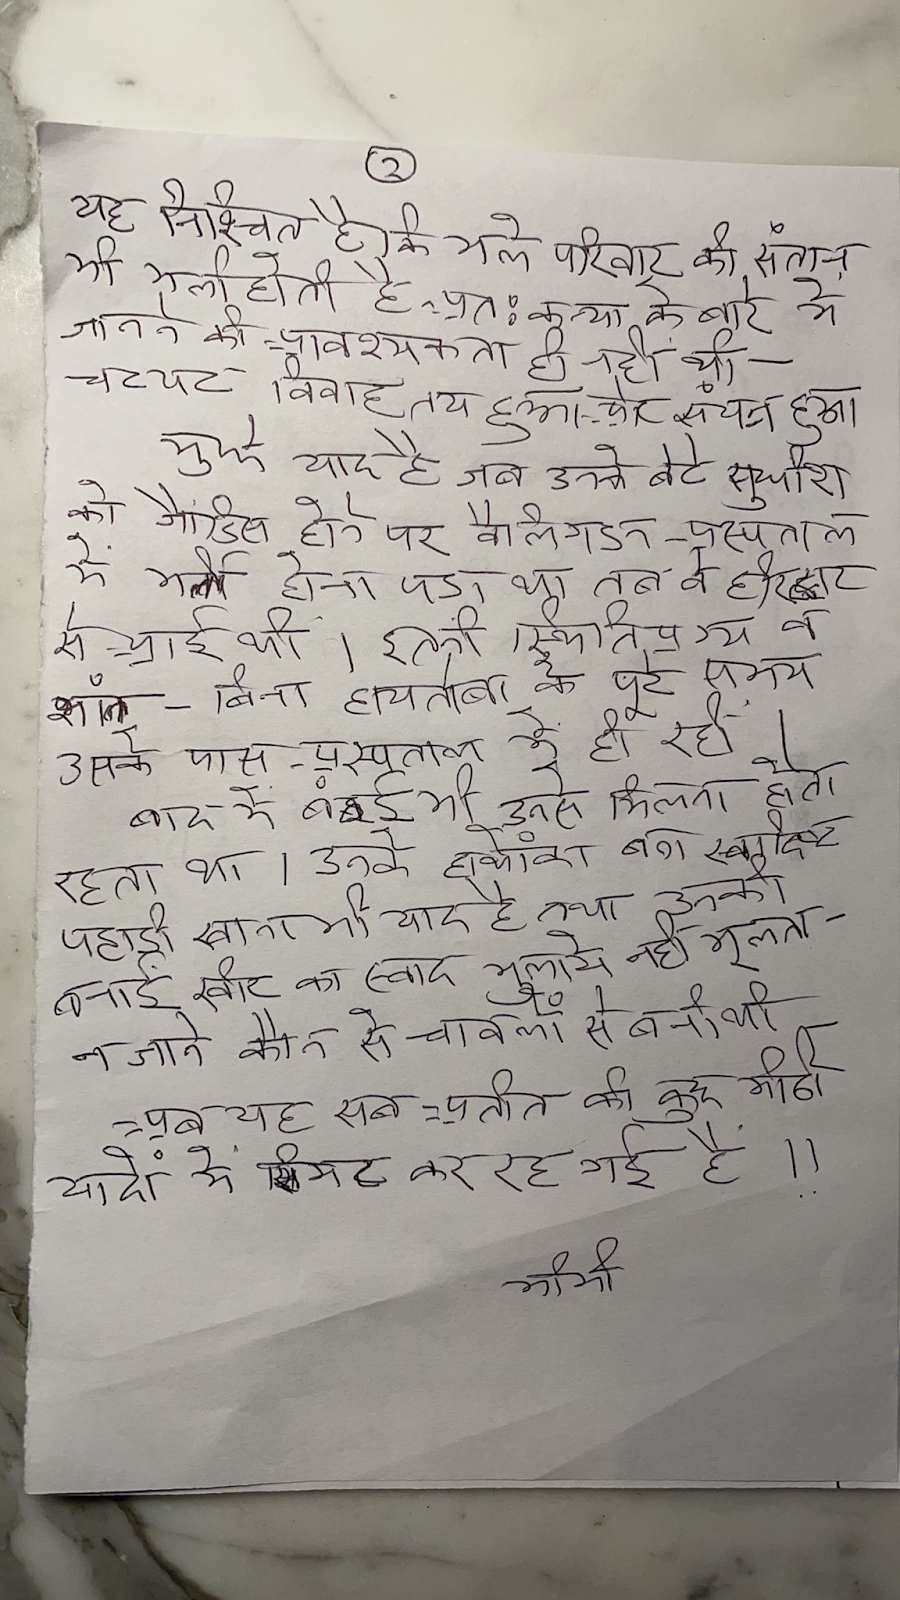 २
यह निश्चित है कि भले परिवार की संतान
भी भली होती है अतः कन्या के बारे में
जानने की आवश्यकता ही नहीं थी –
चटपट विवाह तय हुआ और संपन्न हुआ
मुझे याद है जब उनके बेटे सुधांश
को जौंडिस होने पर वैलिंगडन अस्पताल
में भर्ती होना पडा था तब वे हरिद्वार
से आई थीं । इतनी स्थितिप्रग्य व
शांत – बिना हायतोबा के पूरे समय
उसके पास अस्पताल में ही रहीं ।
बाद में बंबई भी उनसे मिलना होता
रहता था । उनके हाथोंका बना स्वादिष्ट
पहाड़ी खाना भी याद है तथा उनकी
बनाई खीर का स्वाद भुलाये नहीं भूलता –
न जाने कौन से चावलों से बनी थी
अब यह सब अतीत की कुछ मीठी
यादों में सिमट कर रह गई हैं !!
मामी